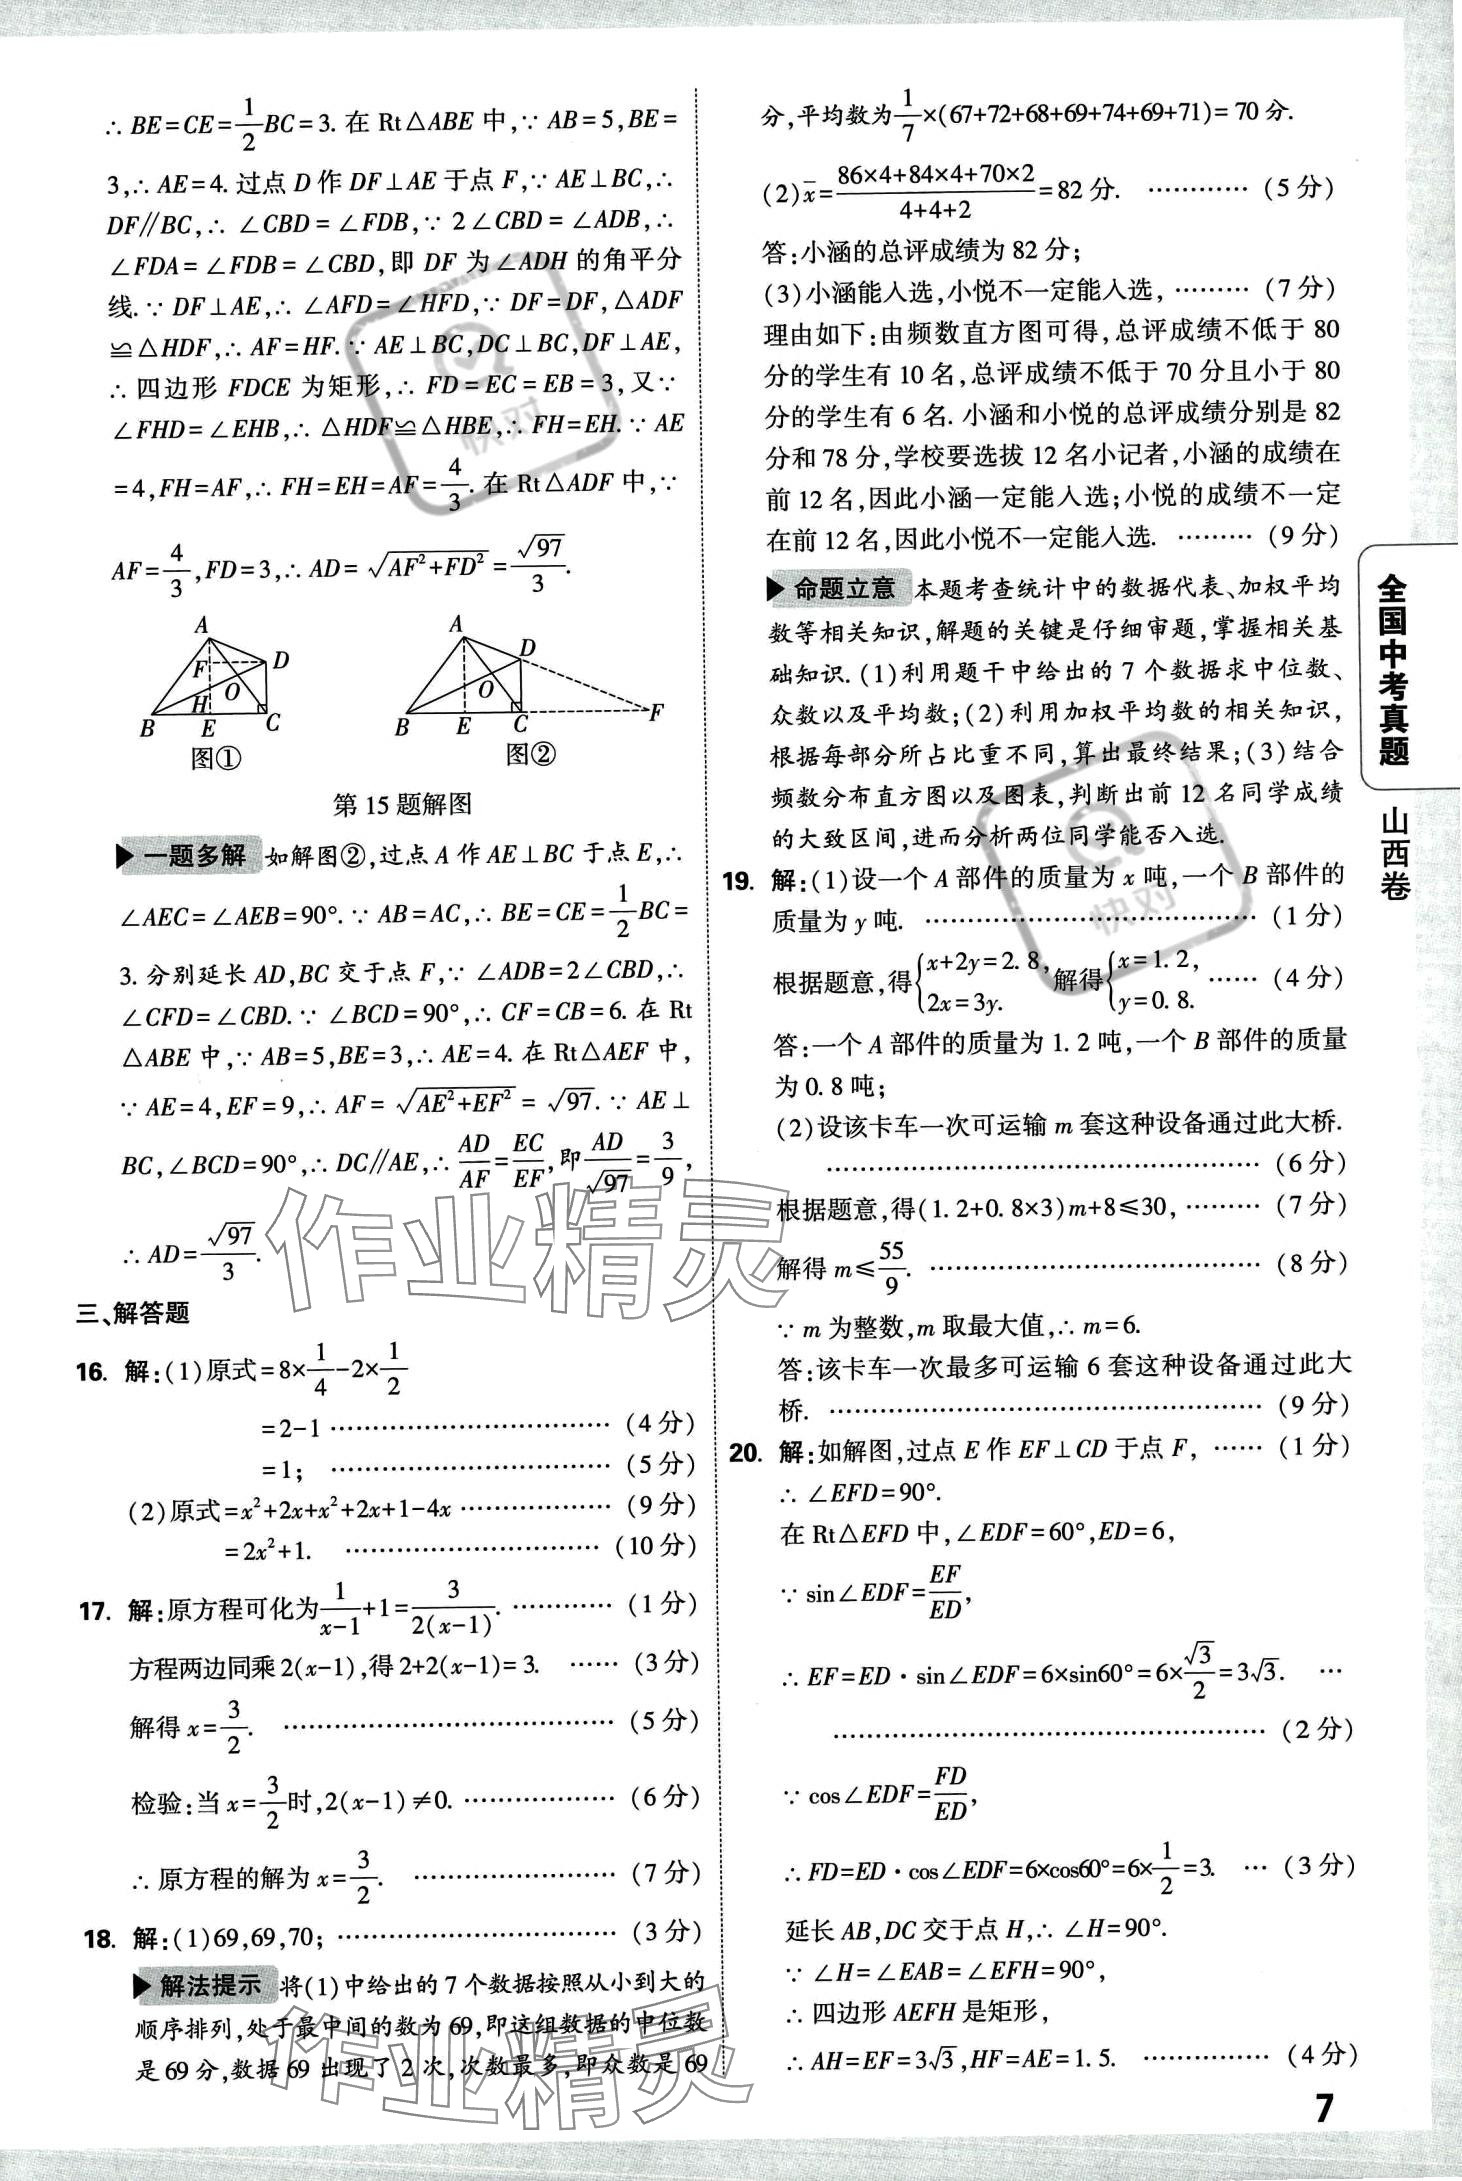 ∴ BE=CE=1/2BC=3. 在 Rt△ABE 中,∵ AB=5,BE=
3,∴ AE=4. 过点 D 作 DF⊥AE 于点 F,∵ AE⊥BC,∴
DF∥BC,∴ ∠CBD=∠FDB,∵ 2∠CBD=∠ADB,∴
∠FDA=∠FDB=∠CBD,即 DF 为∠ADH 的角平分
线.∵ DF⊥AE,∴ ∠AFD=∠HFD,∵ DF=DF,△ADF
≌△HDF,∴ AF=HF.∵ AE⊥BC,DC⊥BC,DF⊥AE,
∴ 四边形 FDCE 为矩形,∴ FD=EC=EB=3,又∵
∠FHD=∠EHB,∴ △HDF≌△HBE,∴ FH=EH.∵ AE
=4,FH=AF,∴ FH=EH=AF=4/3. 在 Rt△ADF 中,∵
AF=4/3,FD=3,∴ AD=√(AF²+FD²)=√97/3.
A
F
D
O
H
B
E
C
图①
A
D
O
B
E
C
F
图②
第 15 题解图
▶ 一题多解 如解图②,过点 A 作 AE⊥BC 于点 E,∴
∠AEC=∠AEB=90°.∵ AB=AC,∴ BE=CE=1/2BC=
3. 分别延长 AD,BC 交于点 F,∵ ∠ADB=2∠CBD,∴
∠CFD=∠CBD.∵ ∠BCD=90°,∴ CF=CB=6. 在 Rt
△ABE 中,∵ AB=5,BE=3,∴ AE=4. 在 Rt△AEF 中,
∵ AE=4,EF=9,∴ AF=√(AE²+EF²)=√97.∵ AE⊥
BC,∠BCD=90°,∴ DC∥AE,∴ AD/AF=EC/EF,即AD/√97=3/9,
∴ AD=√97/3.
三、解答题
16. 解:(1)原式=8×1/4-2×1/2
=2-1 ………………………… (4 分)
=1; ………………………… (5 分)
(2)原式=x²+2x+x²+2x+1-4x ……………… (9 分)
=2x²+1. ……………………… (10 分)
17. 解:原方程可化为1/(x-1)+1=3/(2(x-1)). ………… (1 分)
方程两边同乘 2(x-1),得 2+2(x-1)=3. …… (3 分)
解得 x=3/2. ……………………………… (5 分)
检验:当 x=3/2时,2(x-1)≠0. ……………… (6 分)
∴ 原方程的解为 x=3/2. …………………… (7 分)
18. 解:(1)69,69,70; ………………………… (3 分)
▶ 解法提示 将(1)中给出的 7 个数据按照从小到大的
顺序排列,处于最中间的数为 69,即这组数据的中位数
是 69 分,数据 69 出现了 2 次,次数最多,即众数是 69
分,平均数为1/7×(67+72+68+69+74+69+71)=70 分.
(2)x̄=(86×4+84×4+70×2)/(4+4+2)=82 分. ………… (5 分)
答:小涵的总评成绩为 82 分;
(3)小涵能入选,小悦不一定能入选, ……… (7 分)
理由如下:由频数直方图可得,总评成绩不低于 80
分的学生有 10 名,总评成绩不低于 70 分且小于 80
分的学生有 6 名. 小涵和小悦的总评成绩分别是 82
分和 78 分,学校要选拔 12 名小记者,小涵的成绩在
前 12 名,因此小涵一定能入选;小悦的成绩不一定
在前 12 名,因此小悦不一定能入选. ……… (9 分)
▶ 命题立意 本题考查统计中的数据代表、加权平均
数等相关知识,解题的关键是仔细审题,掌握相关基
础知识. (1)利用题干中给出的 7 个数据求中位数、
众数以及平均数;(2)利用加权平均数的相关知识,
根据每部分所占比重不同,算出最终结果;(3)结合
频数分布直方图以及图表,判断出前 12 名同学成绩
的大致区间,进而分析两位同学能否入选.
19. 解:(1)设一个 A 部件的质量为 x 吨,一个 B 部件的
质量为 y 吨. ……………………………… (1 分)
根据题意,得{x+2y=2.8, 2x=3y. 解得{x=1.2, y=0.8. …… (4 分)
答:一个 A 部件的质量为 1.2 吨,一个 B 部件的质量
为 0.8 吨;
(2)设该卡车一次可运输 m 套这种设备通过此大桥.
………………………………………… (6 分)
根据题意,得(1.2+0.8×3)m+8≤30, ……… (7 分)
解得 m≤55/9. ……………………………… (8 分)
∵ m 为整数,m 取最大值,∴ m=6.
答:该卡车一次最多可运输 6 套这种设备通过此大
桥. ………………………………………… (9 分)
20. 解:如解图,过点 E 作 EF⊥CD 于点 F, …… (1 分)
∴ ∠EFD=90°.
在 Rt△EFD 中,∠EDF=60°,ED=6,
∵ sin∠EDF=EF/ED,
∴ EF=ED·sin∠EDF=6×sin60°=6×√3/2=3√3. …
………………………………………… (2 分)
∵ cos∠EDF=FD/ED,
∴ FD=ED·cos∠EDF=6×cos60°=6×1/2=3. … (3 分)
延长 AB,DC 交于点 H,∴ ∠H=90°.
∵ ∠H=∠EAB=∠EFH=90°,
∴ 四边形 AEFH 是矩形,
∴ AH=EF=3√3,HF=AE=1.5. …………… (4 分)
全国中考真题
山西卷
7
快对
快对
作业精灵
作业精灵